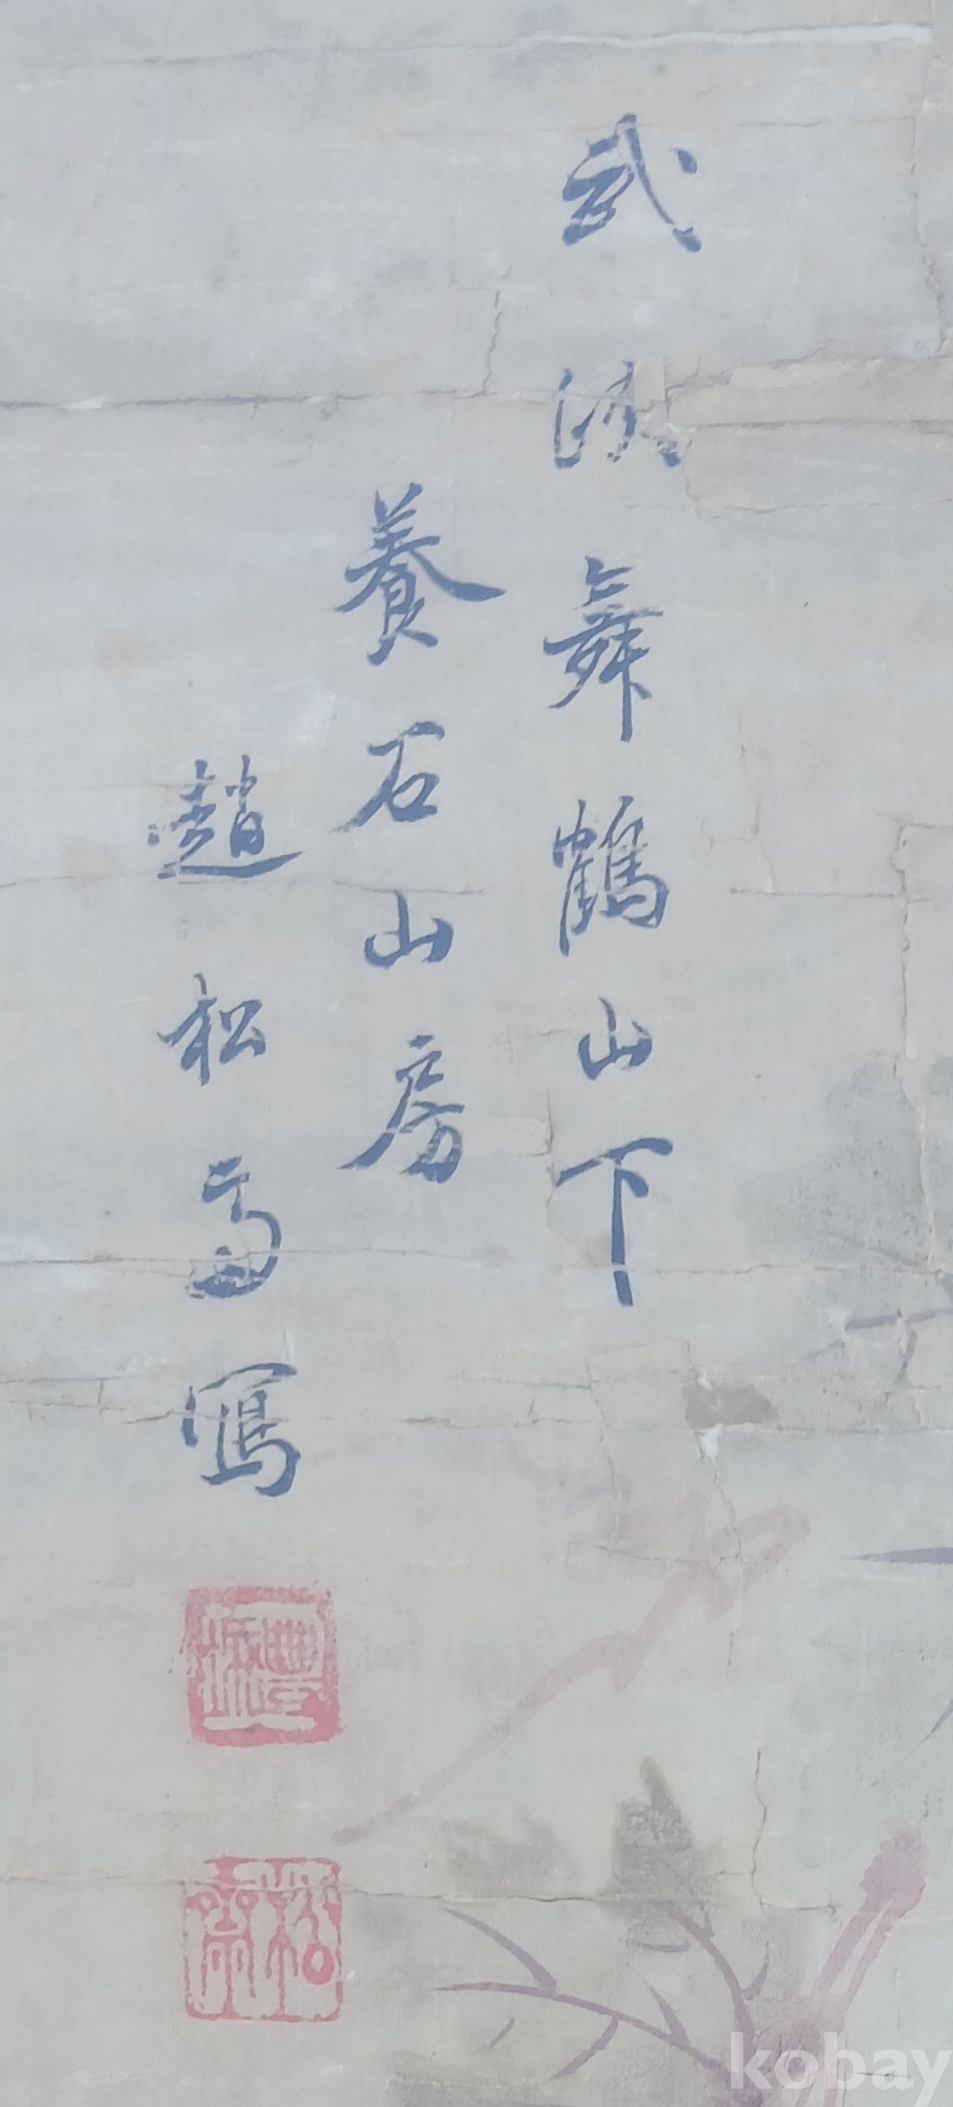 武溪舞鶴山下
養石山房
趙松齋寫
松齋
kobay